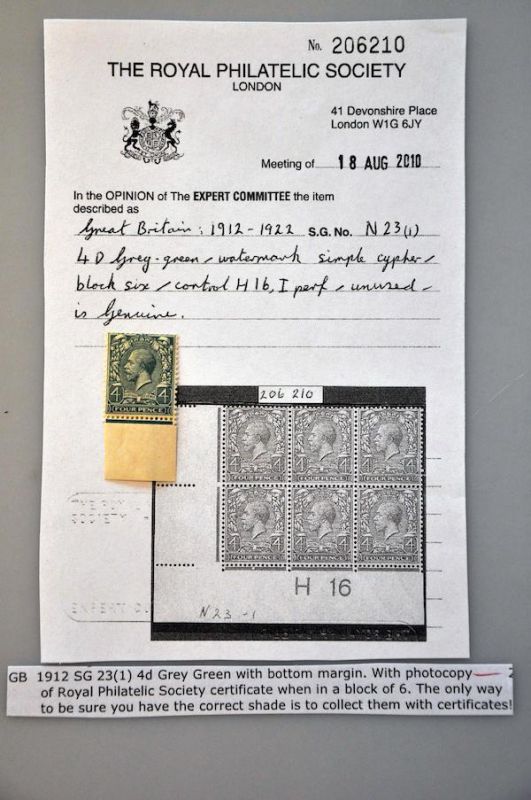 No. 206210
THE ROYAL PHILATELIC SOCIETY
LONDON
41 Devonshire Place
London W1G 6JY
Meeting of 18 AUG 2010
In the OPINION of The EXPERT COMMITTEE the item
described as
Great Britain: 1912-1922 S.G. No. N23(1)
4D Grey-green / watermark simple cypher /
block six / control H16, I perf / unused -
is Genuine.
4 4
FOUR PENCE
206 210
4 4 4 4 4 4
FOUR PENCE FOUR PENCE FOUR PENCE
4 4 4 4 4 4
FOUR PENCE FOUR PENCE FOUR PENCE
H 16
N23-1
THE ROY
SOCIETY
EXPERT CO
GB 1912 SG 23(1) 4d Grey Green with bottom margin. With photocopy
of Royal Philatelic Society certificate when in a block of 6. The only way
to be sure you have the correct shade is to collect them with certificates!